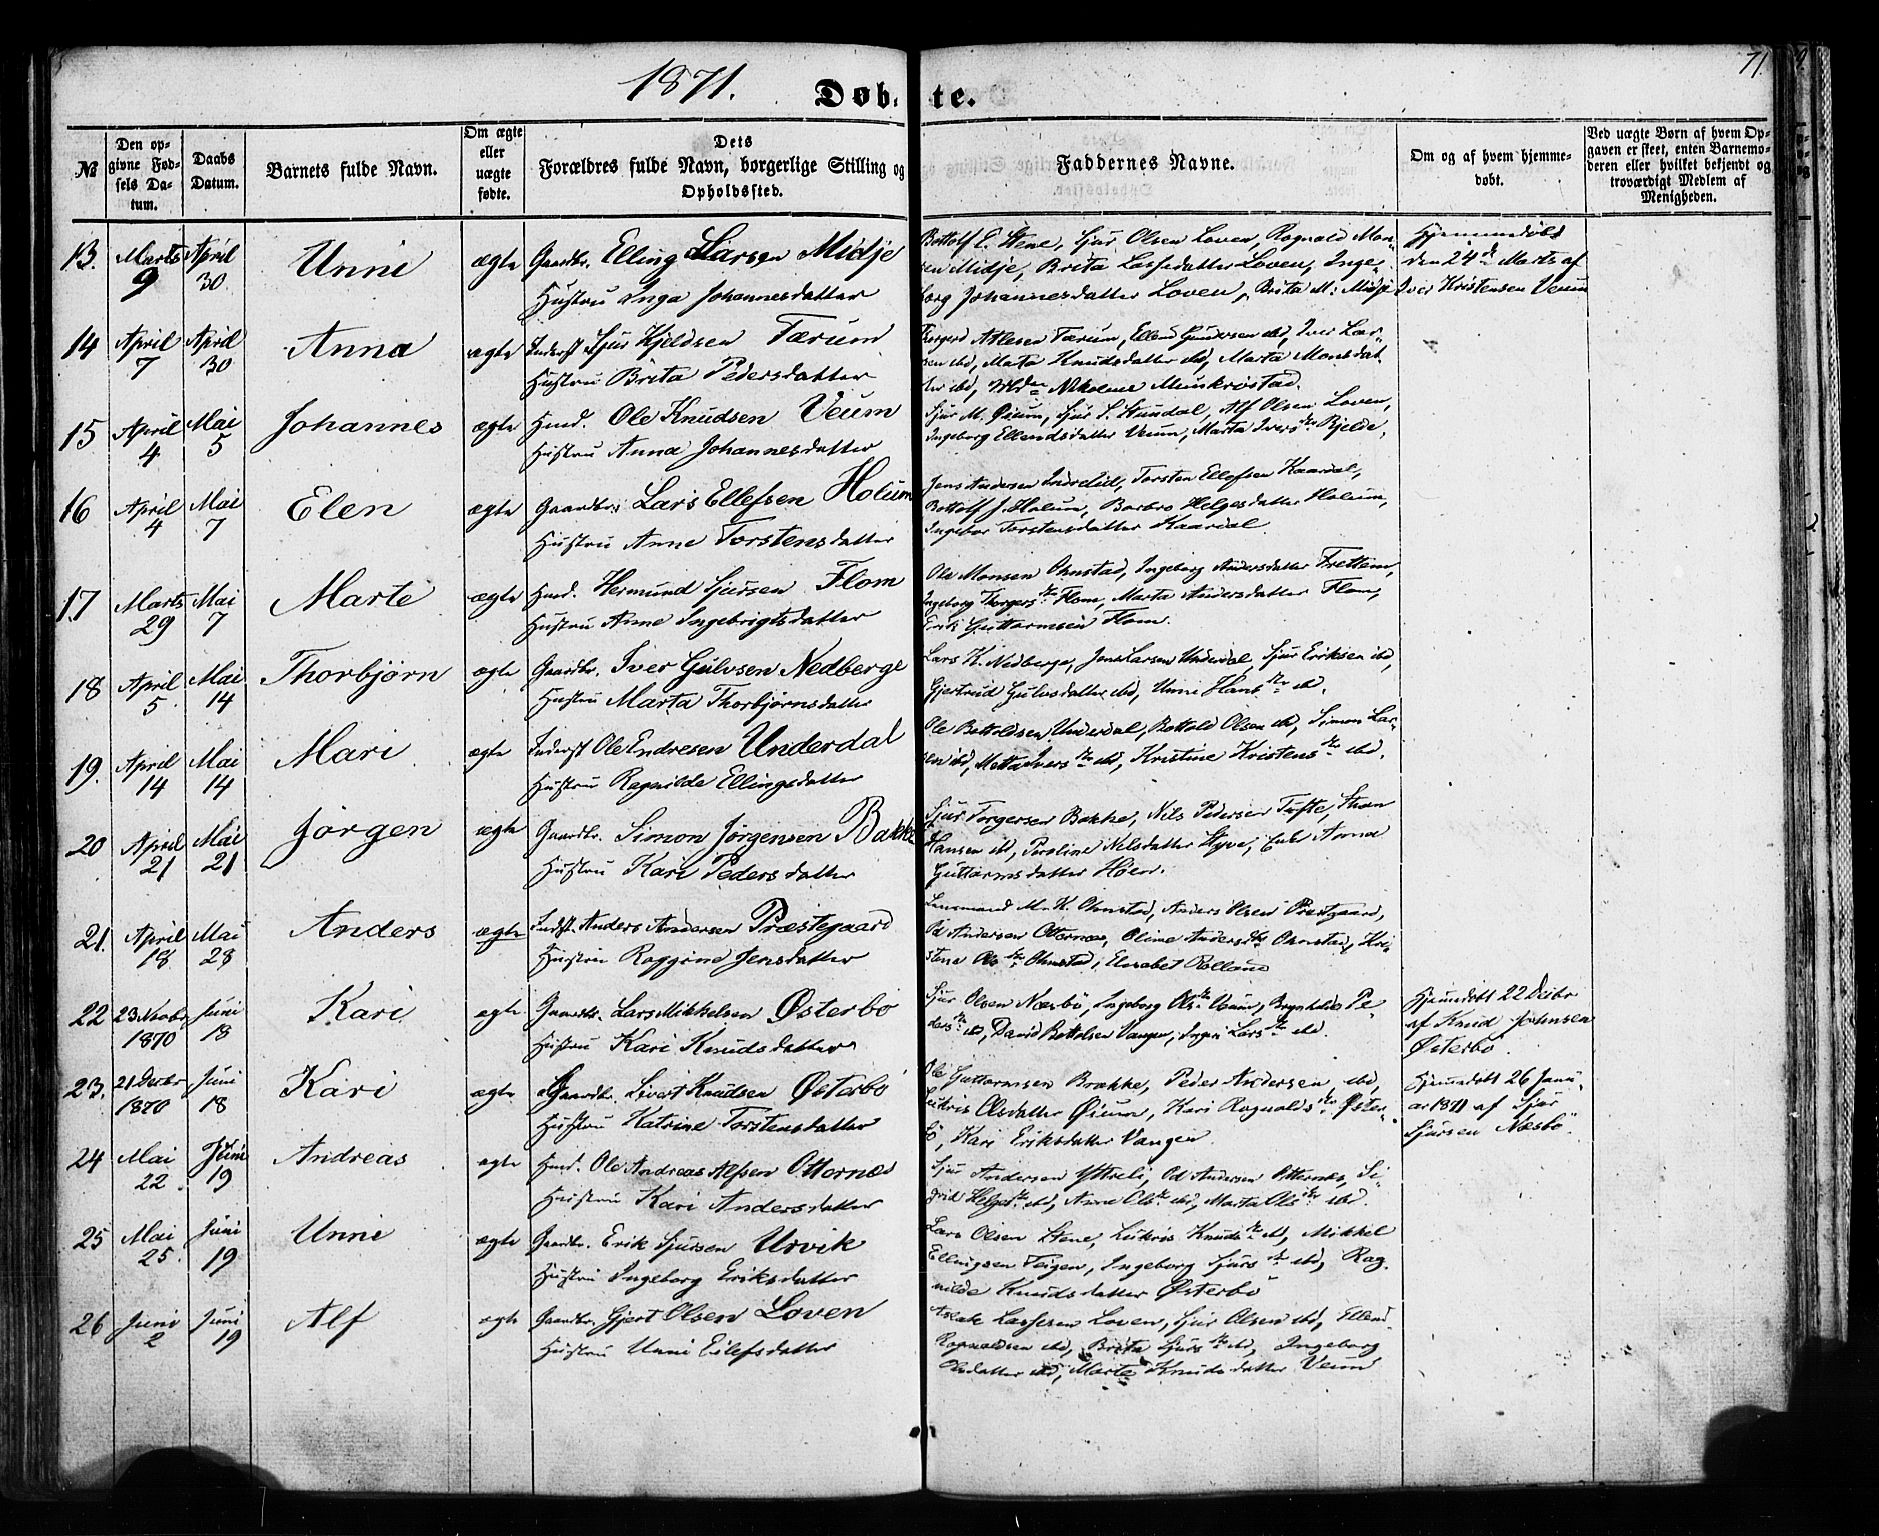 1871.
Døbte.
71.
№
Den opgivne Fødsels Datum.
Daabs Datum.
Barnets fulde Navn.
Om ægte eller uægte fødte.
Dets Forældres fulde Navn, borgerlige Stilling og Opholdssted.
Faddernes Navne.
Om og af hvem hjemmedøbt.
Ved uægte Børn af hvem Opgaven er skeet, enten Barnemoderen eller hvilket bekjendt og troværdigt Medlem af Menigheden.
13. Marts 9 April 30. Unni ægte Gaardbr. Elling Larsen Midje
Hustru Inga Johannesdatter
Bottolf E. Stene, Sjur Olsen Loven, Ragnald Mon-
sen Midje, Brita Lassedatter Loven, Inge-
borg Johannesdatter Loven, Brita M: Midje
Hjemmedøbt
den 24de Marts af
Iver Kristensen Veum
14 April 7 April 30 Anna ægte Inderst Sjur Kjeldsen Færum
Hustru Brita Pedersdatter
Torgerd Atlesen Færum, Ellend Gundersen ibd, Iver Lar-
sen ibd, Mata Knudsdatter ibd, Marta Monsdat
ter ibd, Nikoline Munkrøstad.
15 April 4 Mai 5 Johannes ægte Hmd. Ole Knudsen Veum
Hustru Anna Johannesdatter
Sjur M. Øium, Sjur S. Stundal, Alf Olsen Loven,
Ingeborg Ellendsdatter Veum, Marta Ivers dtr Rjelde.
16 April 4 Mai 7 Elen ægte Gaardbr. Lars Ellefsen Holum
Hustru Anne Torstensdatter
Jens Andersen Indrelid, Torsten Ellefsen Kaardal,
Bottolf J. Holum, Barbro Helgesdatter Holum,
Ingebor Torstensdatter Kaardal
17 Marts 29 Mai 7 Marte ægte Hmd. Hermund Sjursen Flom
Hustru Anne Ingebrigtsdatter
Ole Monsen Ohnstad, Ingeborg Andersdatter Frettem,
Ingeborg Thorgers dtr Flom, Marta Andersdatter Flom,
Erik Guttormsen Flom.
18 April 5 Mai 14 Thorbjørn ægte Gaardbr. Iver Gulvsen Nedberge
Hustru Marta Thorbjørnsdatter
Lars K. Nedberge, Jens Larsen Underdal, Sjur Eriksen ibd,
Gjertrud Gulvsdatter ibd, Unni Hans dtr ibd.
19. April 14 Mai 14 Mari ægte Inderst Ole Endresen Underdal
Hustru Ragnilde Ellingsdatter
Ole Bottoldsen Underdal, Bottold Olsen ibd, Simon Lar-
sen ibd, Metta Ivers dtr ibd, Kristine Kristens dtr ibd.
20 April 21 Mai 21 Jørgen ægte Gaardbr. Simon Jørgensen Bakke
Hustru Kari Pedersdatter
Sjur Torgersen Bakke, Nils Pedersen Tufte,
Hansen ibd, Peroline Nilsdatter Styve, Enke Anna
Guttormsdatter
21. April 18. Mai 28 Anders ægte Indst. Anders Andersen Præstegaard
Hustru Jensdatter
Lensmand M. K. Ohnstad, Anders Olsen Prestgaard,
Od Andersen Otternæs, Oline Anders dtr Ohnstad, Kri-
stene Ols dtr Ohnstad, Elisabet
22 23 Novbr 1870 Juni 18 Kari ægte Gaardbr. Lars Mikkelsen Østerbö
Hustru Kari Knudsdatter
Sjur Olsen Næsbö, Ingeborg Ols dtr, Brynhilde Pe-
ders dtr ibd, David Bottolsen Vangen, Lars dtr ibd.
Hjemdöbt 22 Decbr
af Knud Johnsen
Østerbö
23. 21 Decbr 1870 Juni 18 Kari ægte Gaardbr. Sivert Knudsen Østerbö
Hustru Katrine Torstensdatter
Ole Guttormsen Brække, Peder Andersen ibd,
Lukris Olsdatter Øium, Kari Ragnalds dtr Øster-
bö, Kari Eriksdatter Vangen.
Hjemdöbt 26 Janu-
ar 1871 af Sjur
Sjursen Næsbö.
24 Mai 22 Juni 19 Andreas ægte Hmd. Ole Andreas Alfsen Otternæs
Hustru Kari Andersdatter
Sjur Andersen Ytreli, Od Andersen Otternes, Si-
grid Helges dtr ibd, Anne Ols dtr ibd, Marta Ols dtr ibd.
25 Mai 25. Juni 19 Unni ægte Gaardbr. Erik Sjursen Urvik
Hustru Ingeborg Eriksdatter
Lars Olsen Stene, Lukris Knuds dtr ibd, Mikkel
Ellingsen Teigen, Ingeborg Sjurs dtr ibd, Rag-
nilde Knudsdatter Østerbö
26 Juni 2 Juni 19 Alf ægte Gaardbr. Gjert Olsen Loven
Hustru Unni Eilefsdatter
Aslak Lassesen Loven, Sjur Olsen ibd, Ellend
Ragnaldsen ibd, Brita Sjurs dtr ibd, Ingeborg
Olsdatter ibd, Marte Knudsdatter Veum